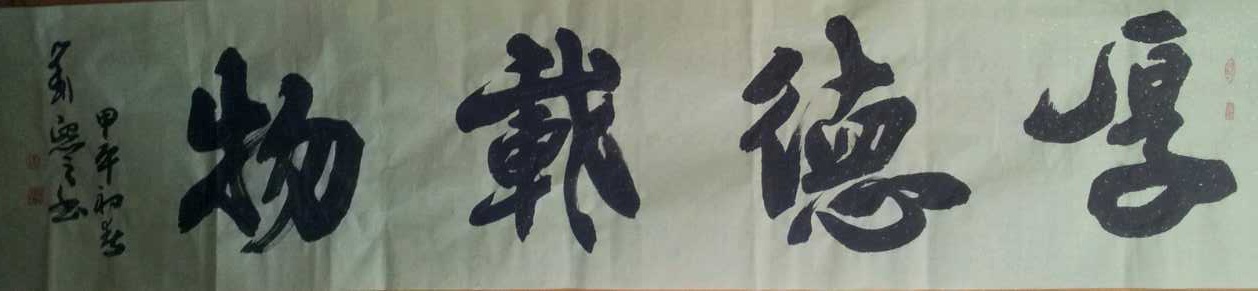 厚德載物
甲午初春